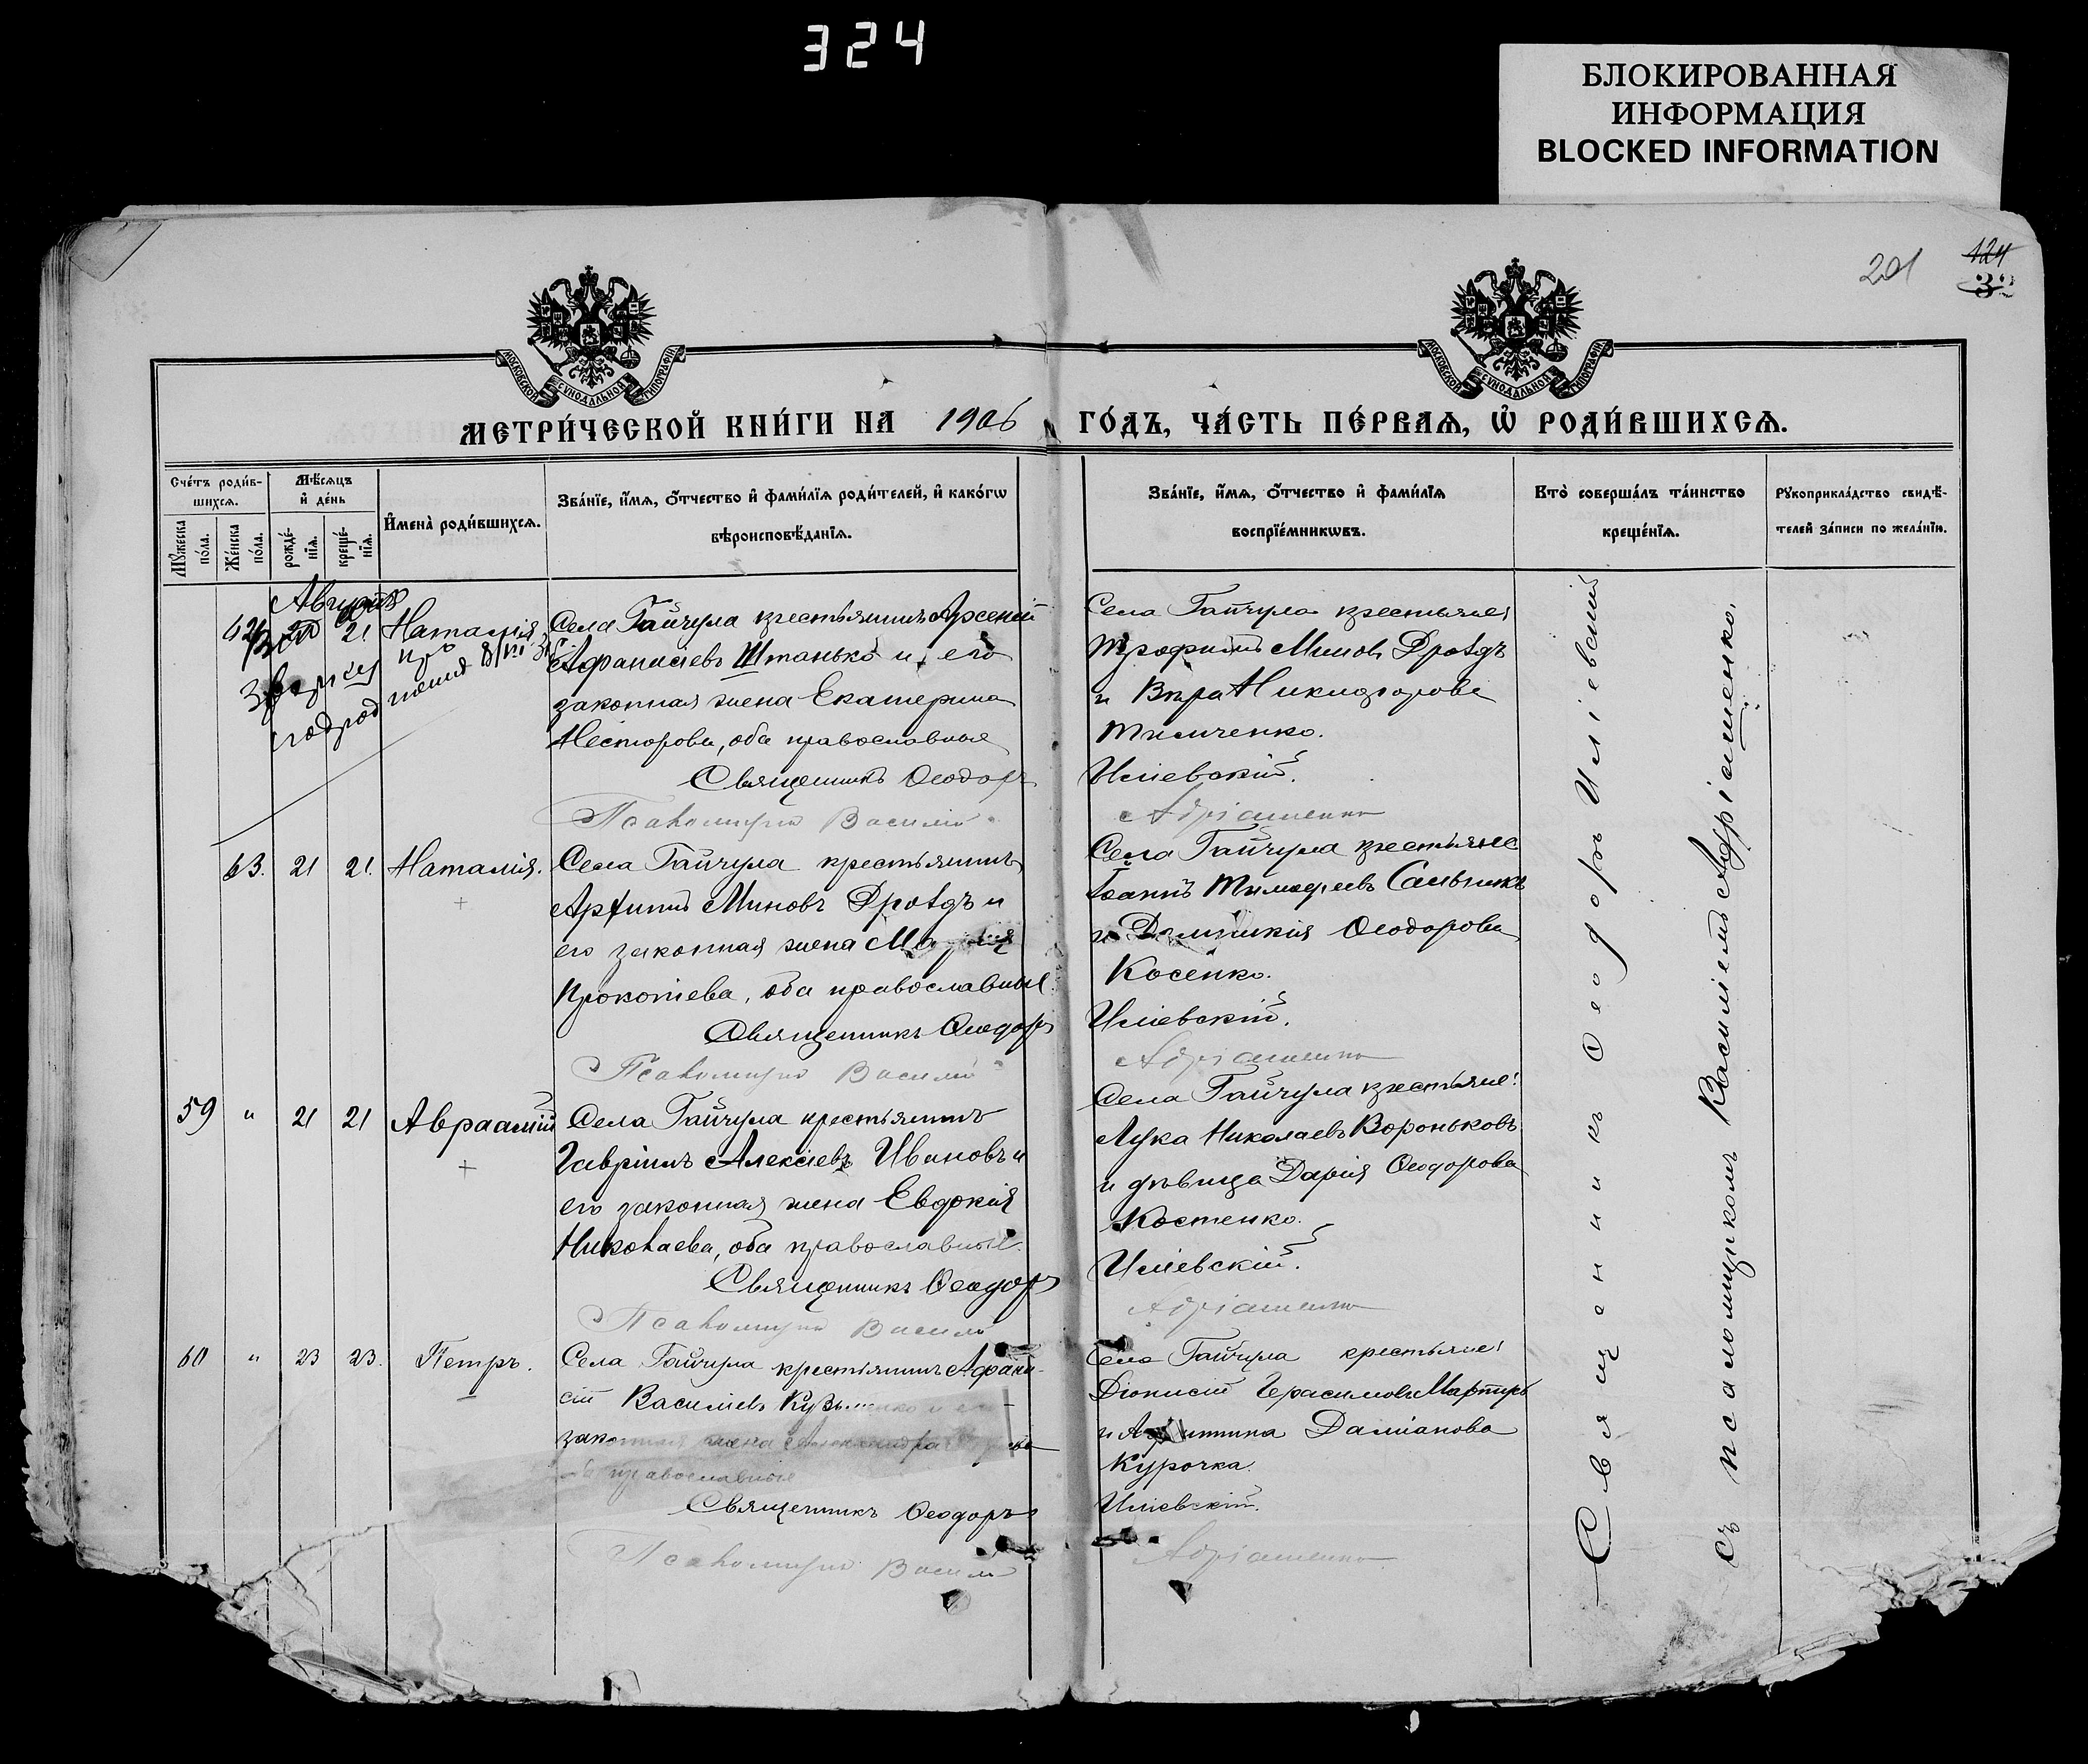 324
БЛОКИРОВАННАЯ
ИНФОРМАЦИЯ
BLOCKED INFORMATION
201
124
МОСКОВСКОЙ СѴНОДАЛЬНОЙ ТИПОГРАФІИ
МОСКОВСКОЙ СѴНОДАЛЬНОЙ ТИПОГРАФІИ
МЕТРИ́ЧЕСКОЙ КНИ́ГИ НА 1906 ГО́ДЪ, ЧА́СТЬ ПЕ́РВАѦ, Ѡ҆ РОДИ́ВШИХСѦ.
Сче́тъ роди́в-
шихсѧ.
Мꙋжеска по́ла.
Же́нска по́ла.
Мѣ́сѧцъ
и҆ де́нь
рожде́-
нїѧ.
креще́-
нїѧ.
И҆мена̀ роди́вшихсѧ.
Зва́нїе, и҆́мѧ, ѻ҆́тчество и҆ фами́лїѧ роди́телей, и҆ како́гѡ
вѣроисповѣ́данїѧ.
Зва́нїе, и҆́мѧ, ѻ҆́тчество и҆ фами́лїѧ
воспрїе́мникѡвъ.
Кто̀ соверша́лъ та́инство
креще́нїѧ.
Рꙋкоприкла́дство свидѣ́-
телей за́писи по жела́нїю.
Августъ
62 20 21 Наталія
Села Гайчула крестьянинъ Арсеній
Афанасіевъ Штанько и его
законная жена Екатерина
Несторова, оба православные
Священникъ Ѳеодоръ
Псаломщикъ Василій
Села Гайчула крестьяне:
Трофимъ Миновъ Дроздъ
и Вѣра Никифорова
Тимченко.
Иліевскій.
Адріашенко
63. 21 21. Наталія.
Села Гайчула крестьянинъ
Миновъ Дроздъ и
его законная жена Марія
Прокопіева, оба православные.
Священникъ Ѳеодоръ
Псаломщикъ Василій
Села Гайчула крестьяне
Іоаннъ Тимофеевъ Сальникъ
и Домникія Ѳеодорова
Косенко.
Иліевскій.
Адріашенко
59 " 21 21 Авраамій
Села Гайчула крестьянинъ
Гавріилъ Алексіевъ Ивановъ и
его законная жена Евдокія
Николаева, оба православные.
Священникъ Ѳеодоръ
Псаломщикъ Василій
Села Гайчула крестьяне:
Лука Николаевъ Вороньковъ
и дѣвица Дарія Ѳеодорова
Костенко.
Иліевскій.
Адріашенко
60 " 23 23. Петръ.
Села Гайчула крестьянинъ Афана-
сій Василіевъ Кузьменко и его
законная жена Александра
оба православные
Священникъ Ѳеодоръ
Псаломщикъ Василій
Села Гайчула крестьяне:
Діонисій Герасимовъ
и Дамианова
Курочка.
Иліевскій.
Адріашенко
Священникъ Ѳеодоръ Иліевскій
съ псаломщикомъ Василіемъ Адріашенко.